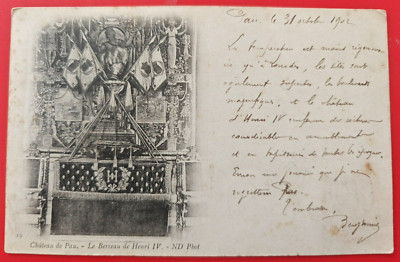 Pau le 31 octobre 1902
La température est moins rigoureuse
ici qu'à Lourdes, les sites sont
également superbes, le boulevard
magnifique, et le château
d'Henri IV renferme des richesses
considérables en ameublement
et en tapisseries de toutes les époques.
que je
regretterai Pau
Benjamin
13
Château de Pau. - Le Berceau de Henri IV. - ND Phot